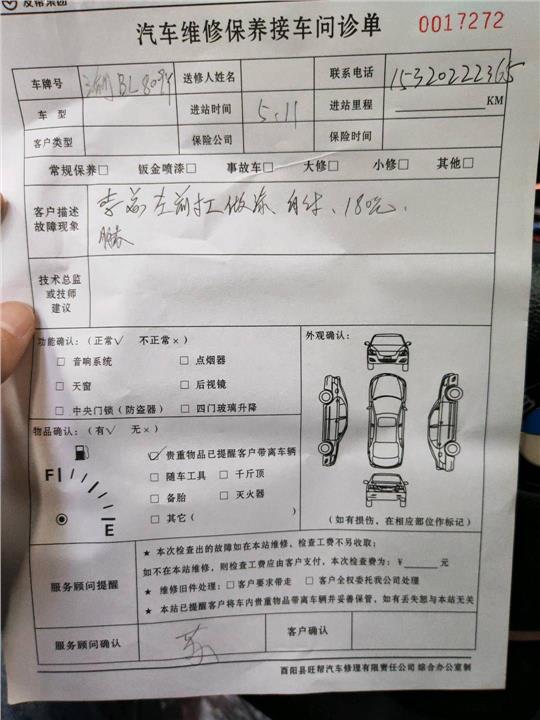 汽车维修保养接车问诊单
0017272
车牌号 送修人姓名 联系电话 15320222365
车 型 进站时间 5.11 进站里程 KM
客户类型 保险公司 保险时间
常规保养□ 钣金喷漆□ 事故车□ 大修□ 小修□ 其他□
客户描述
故障现象
左前杠做漆 180元
技术总监
或技师
建议
功能确认:(正常√ 不正常×)
□ 音响系统 □ 点烟器
□ 天窗 □ 后视镜
□ 中央门锁(防盗器) □ 四门玻璃升降
外观确认:
物品确认:(有√ 无×)
□ 贵重物品已提醒客户带离车辆
□ 随车工具 □ 千斤顶
□ 备胎 □ 灭火器
□ 其它( )
F
E
(如有损伤,在相应部位作标记)
服务顾问提醒
★ 本次检查出的故障如在本站维修,检查工费不另收取;
如不在本站维修,则检查工费应由客户支付,本次检查费为:¥ 元
★ 维修旧件处理:□ 客户要求带走 □ 客户全权委托我公司处理
★ 本站已提醒客户将车内贵重物品带离车辆并妥善保管,如有丢失恕与本站无关
服务顾问确认 客户确认
酉阳县旺帮汽车修理有限责任公司 综合办公室制